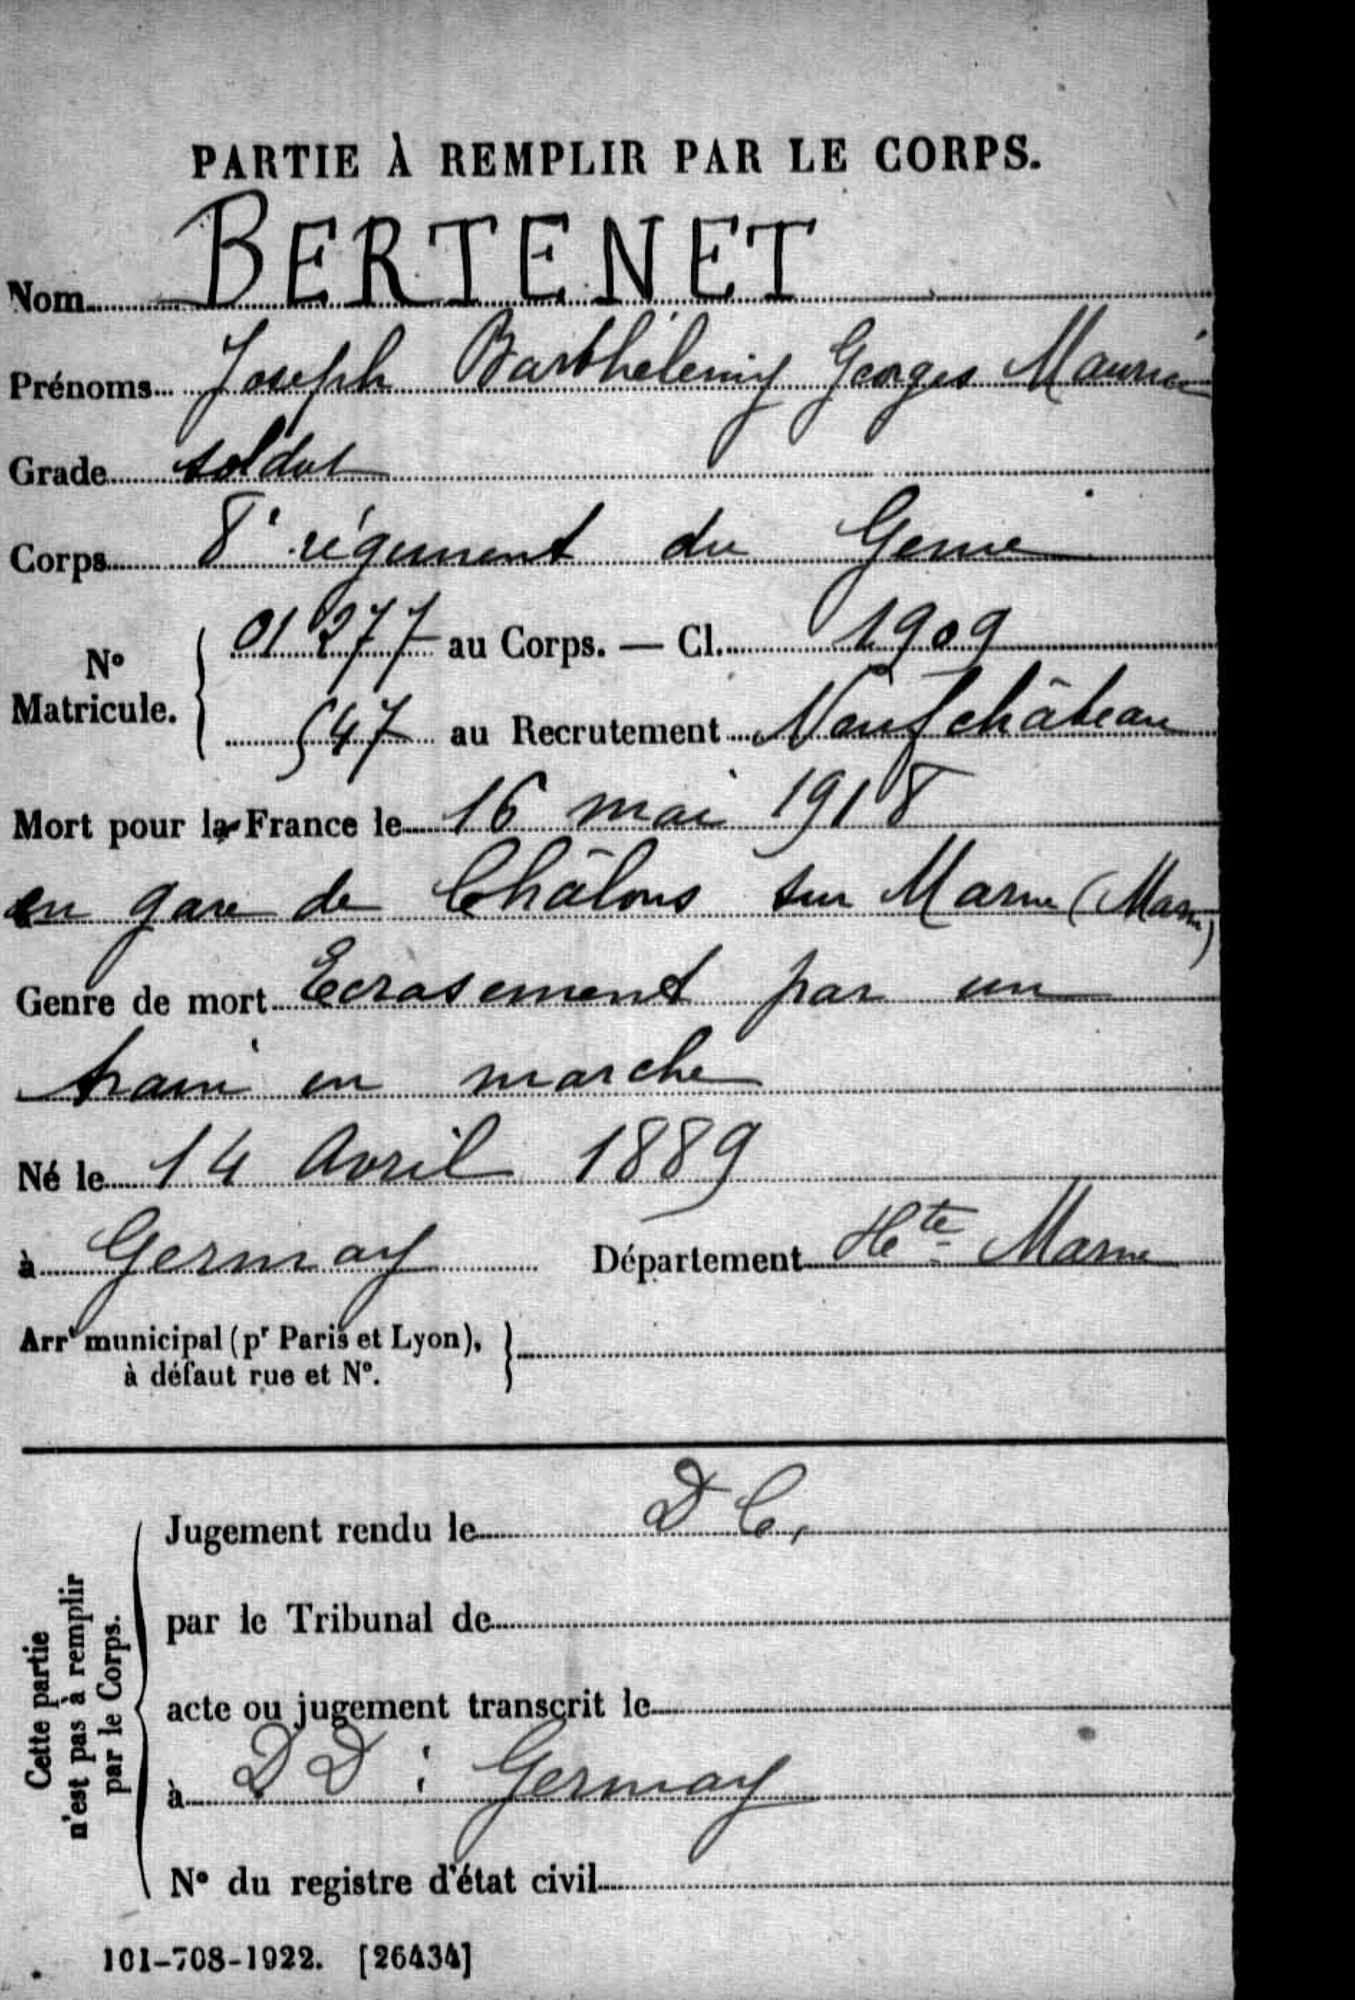 PARTIE À REMPLIR PAR LE CORPS.
Nom BERTENET
Prénoms Joseph Barthélemy Georges Maurice
Grade soldat
Corps 8e régiment du Génie
N° Matricule. 01277 au Corps. — Cl. 1909
547 au Recrutement Neufchâteau
Mort pour la France le 16 mai 1918
en gare de Châlons sur Marne (Marne)
Genre de mort Ecrasement par un
train en marche
Né le 14 Avril 1889
à Germay Département Hte Marne
Arrt municipal (pr Paris et Lyon),
à défaut rue et N°.
Cette partie
n'est pas à remplir
par le Corps.
Jugement rendu le D C.
par le Tribunal de
acte ou jugement transcrit le
à DD : Germay
N° du registre d'état civil
101-708-1922. [26434]